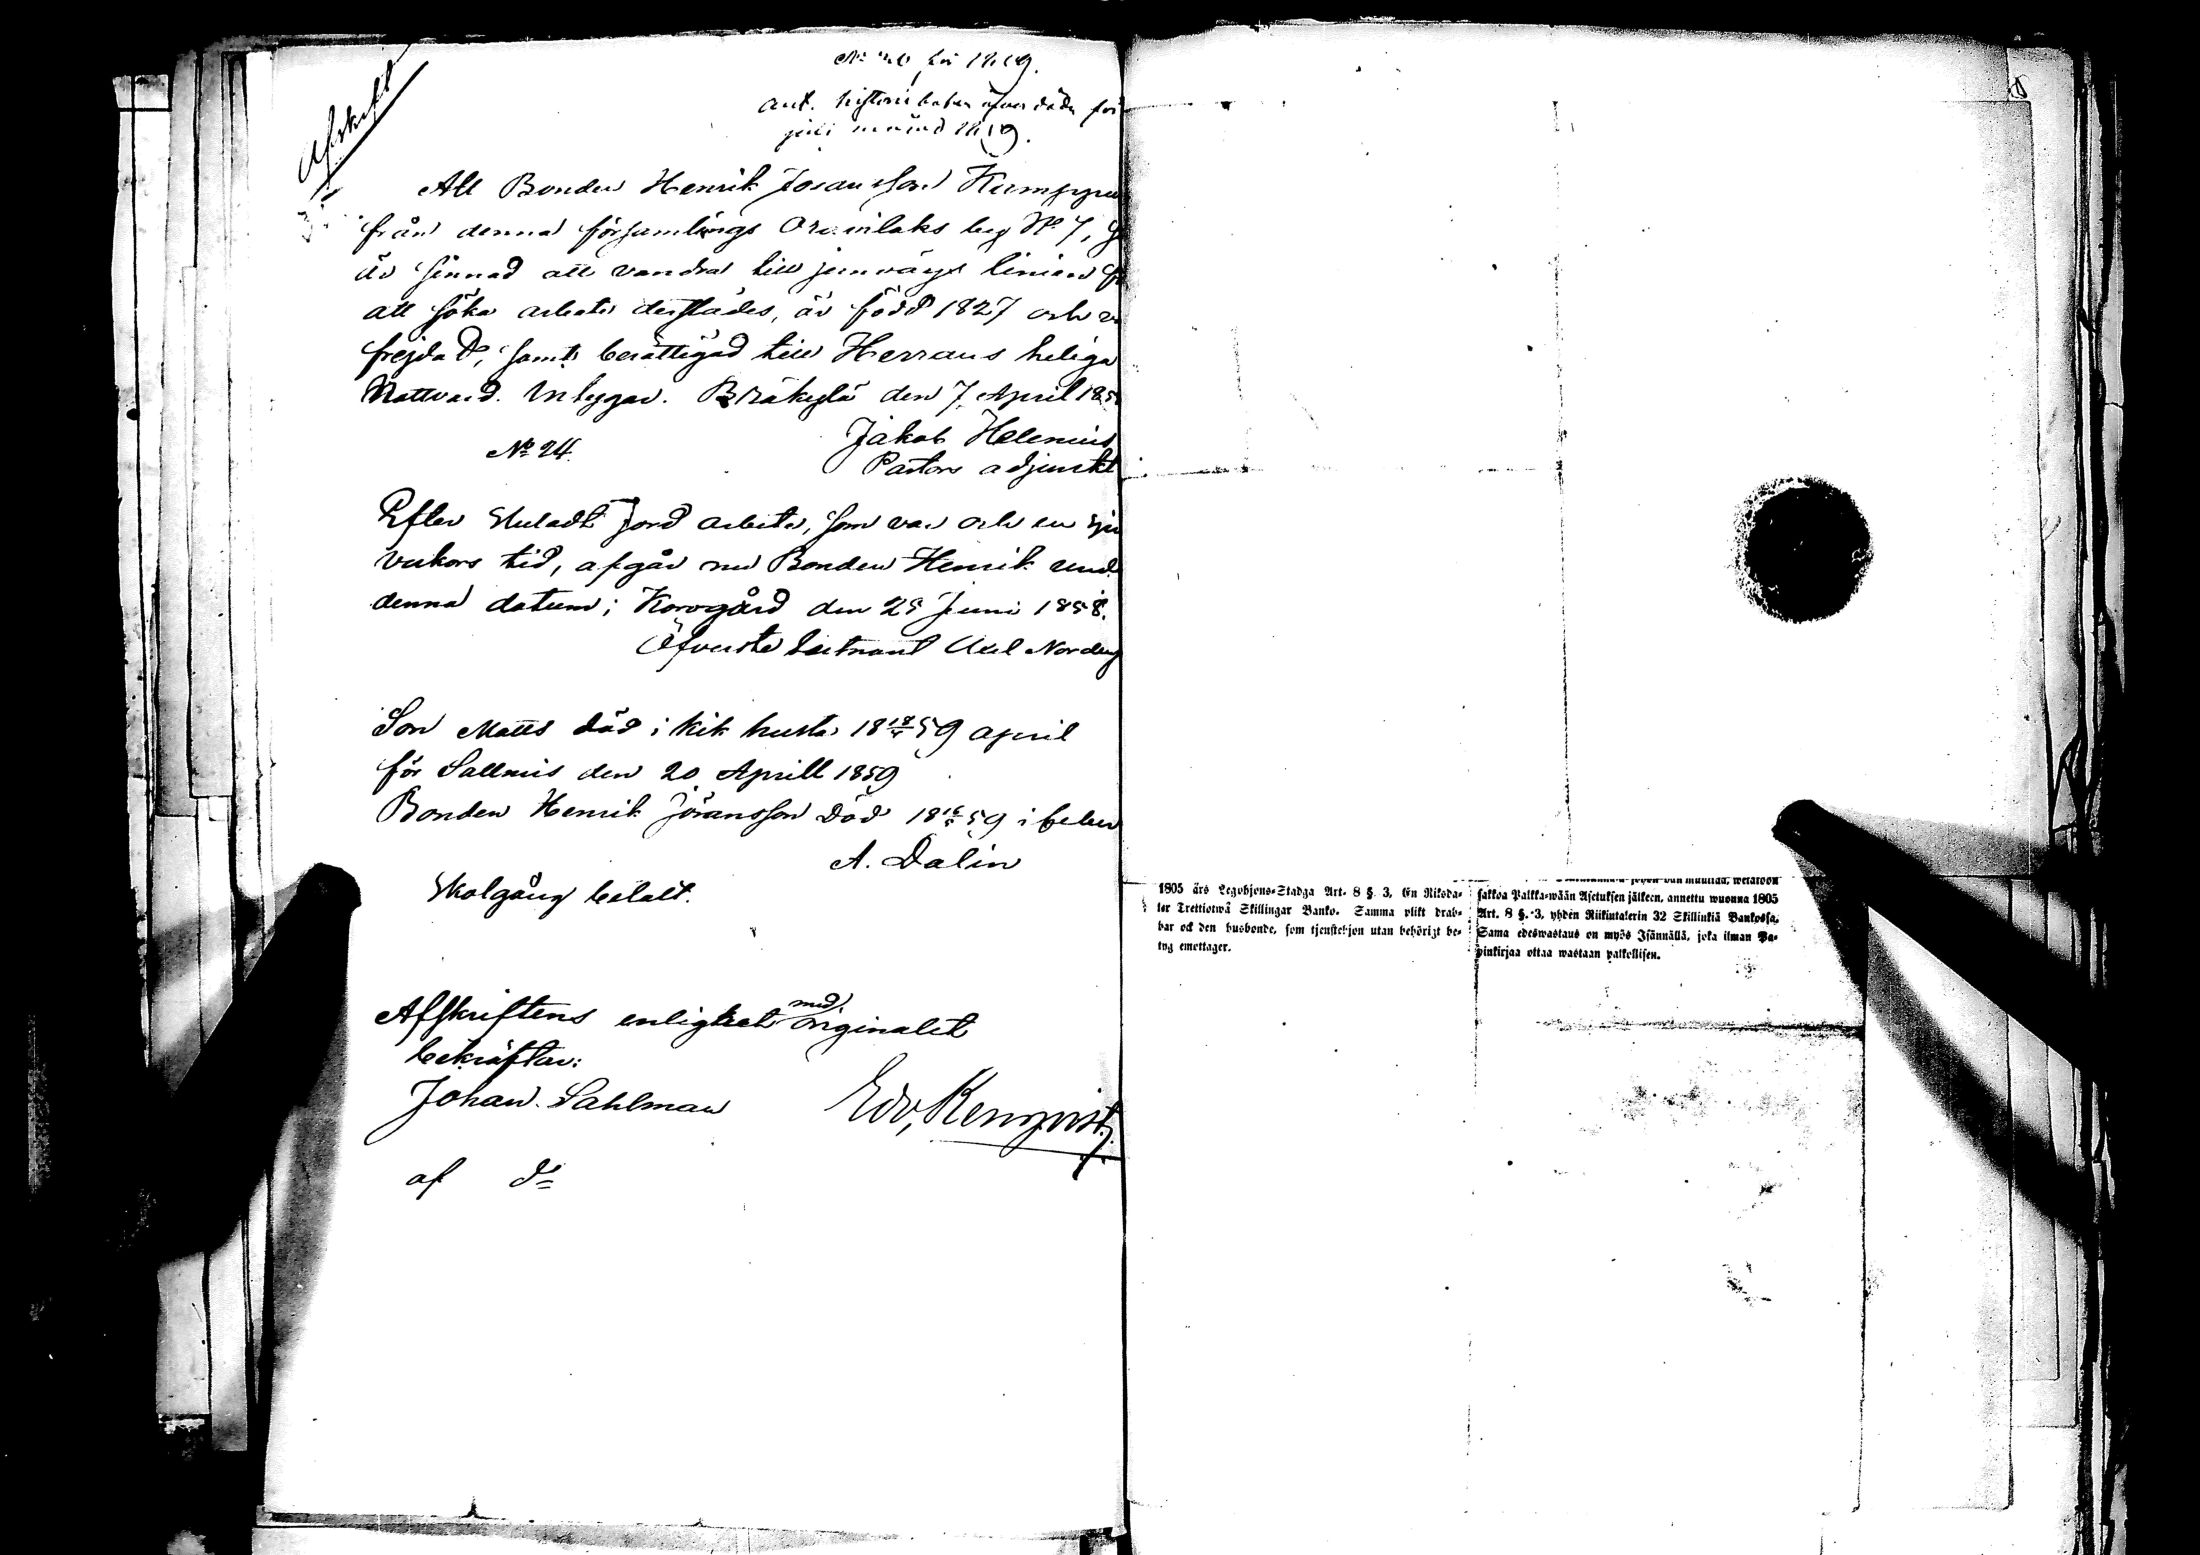 Afskrift
No 20 för 1859.
Ant. historie boken öfver döda för
juli månad 1859.
Att Bonden Henrik Joransson Kumppu
från denna församlings Oravilaks by No 7,
är sinnad att vandra till jernvägs linien
att söka arbete derstädes, är född 1827 och
frejdad, samt berättigad till Herrans heliga
Nattvard. Intygar. Bräkylä den 7 April 185
No 24
Jakob Helenius
Pastors adjunkt
Efter slutadt jord arbete, som var och en
veckors tid, afgår nu Bonden Henrik
denna datum; Korvgård den 25 Juni 1858.
Öfverste leitnant Axel Norden
Son Matts död i kik husta 18 59 april
för Sallmis den 20 Aprill 1859
Bonden Henrik Jöransson död 18 59 i feber
A. Dalin
Skolgång betalt.
Afskriftens enlighet med originalet
bekräftar:
Johan Sahlman
Edv, Renqvist.
af do
1805 års Legohjons-Stadga Art. 8 §. 3, En Riksda-
ler Trettiotwå Skillingar Banko. Samma plikt drab-
bar ock den husbonde, som tjenstehjon utan behörigt be-
tyg emottager.
sakkoa Palkka-wään Asetuksen jälkeen, annettu wuonna 1805
Art. 8 §. 3, yhden Riikintalerin 32 Skillinkiä Bankossa.
Sama edeswastaus on myös Isännällä, joka ilman Pa-
pinkirjaa ottaa wastaan palkollisen.